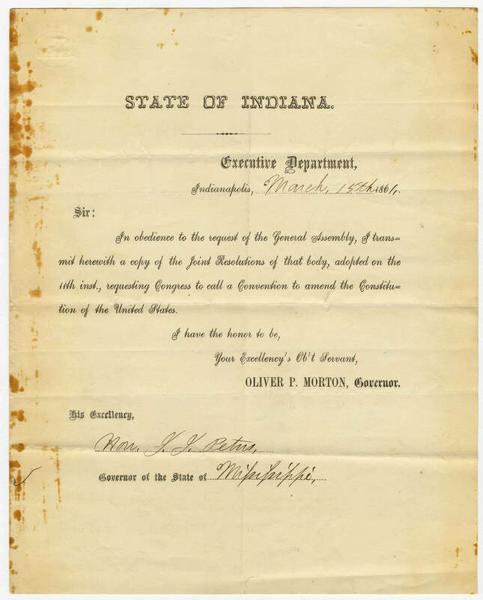 STATE OF INDIANA.
Executive Department,
Indianapolis, March, 15th 1861.
Sir:
In obedience to the request of the General Assembly, I trans-
mit herewith a copy of the Joint Resolutions of that body, adopted on the
11th inst., requesting Congress to call a Convention to amend the Constitu-
tion of the United States.
I have the honor to be,
Your Excellency's Ob't Servant,
OLIVER P. MORTON, Governor.
His Excellency,
Hon. J. J. Pettus,
Governor of the State of Mississippi,